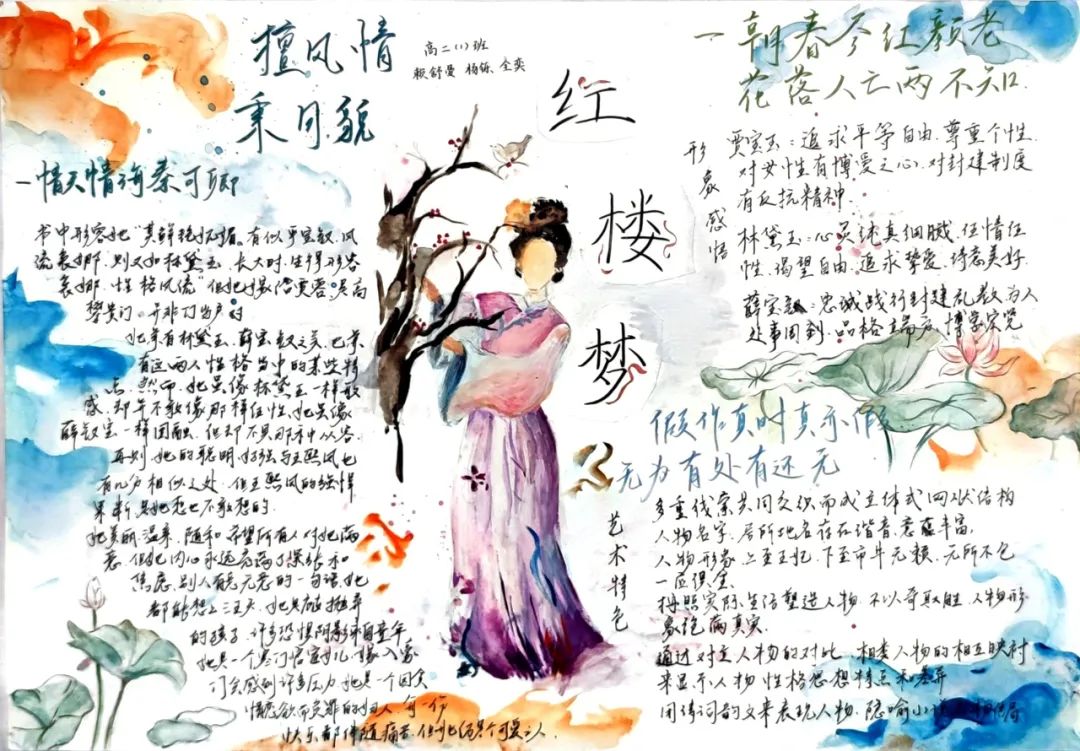 擅风情
秉月貌
高二(1)班
赖舒曼 杨铄、全奕
一情天情海秦可卿
书中形容她"其鲜艳妩媚。有似乎宝钗,风
流袅娜,则又如林黛玉,长大时,生得形容
袅娜,性格风流"但她嫁给贾蓉,是高
攀贵门。并非门当户对
她兼有林黛玉、薛宝钗之美,也兼
有这两人性格当中的某些特
点,然而,她虽像林黛玉一样敏
感,却并不敢像那样任性,她虽像
薛钗宝一样圆融,但却不具那种从容。
再则,她的聪明、好强与王熙凤也
有几分相似之处,但王熙凤的强悍
果断,是她想也不敢想的。
她美丽、温柔、随和,希望所有人对她满
意,但她内心永远充满了紧张和
焦虑,别人有意无意的一句话,她
都能想上三五天,她具备抛弃
的孩子,许多恐惧阴影来自童年
她是一个寒门宦女儿,嫁入豪
门会感到许多压力,她是一个因失
情感欲而负罪的妇人,每一份
快乐都伴随痛苦,但她仍是个可爱之人.
红
楼
梦
一朝春尽红颜老
花落人亡两不知.
形象感悟
贾宝玉:追求平等自由.尊重个性.
对女性有博爱之心.对封建制度
有反抗精神.
林黛玉:心灵纯真细腻.任情任
性.渴望自由.追求挚爱.诗意美好.
薛宝钗:忠诚践行封建礼教.为人
处事周到.品格端庄.博学宏览
假作真时真亦假
无为有处有还无
艺术特色
多重线索共同交织而成立体式网状结构
人物名字.居所地名存在谐音.意蕴丰富.
人物形象上至王妃.下至市井无赖.无所不包
一应俱全.
按照实际生活塑造人物.不以奇取胜.人物形
象饱满真实.
通过对立人物的对比.相类人物的相互映衬
来显示人物性格思想特点和差异
用诗词韵文来表现人物.隐喻小